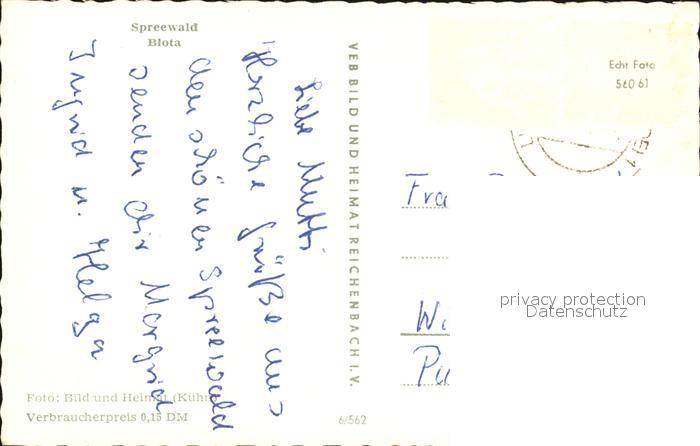 Spreewald
Blota
Liebe Mutti
Herzliche Grüße aus
den schönen Spreewald
senden dir Margrid
Ingrid u. Helga
Foto: Bild und Heimat (Kühn)
Verbraucherpreis 0,15 DM
6/562
VEB BILD UND HEIMAT REICHENBACH I. V.
Echt Foto
560 61
Fra
Wi
privacy protection
Datenschutz